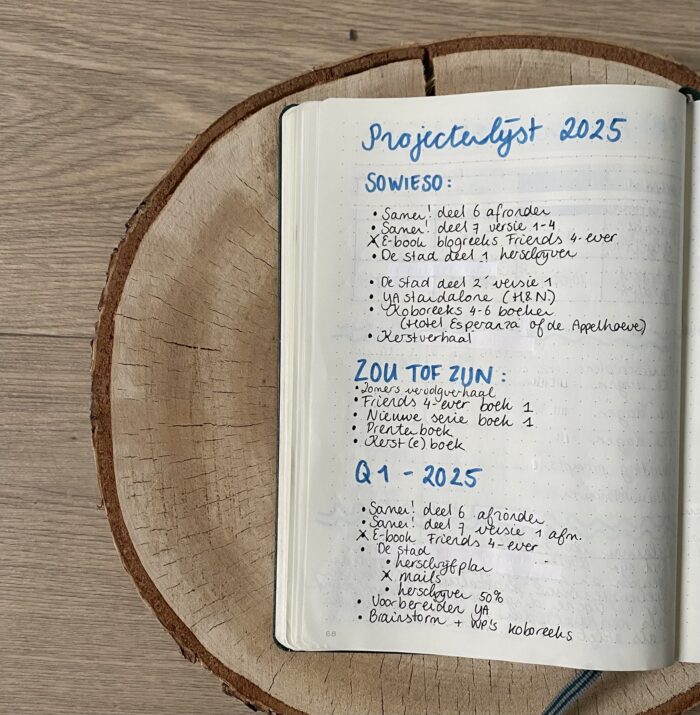 Projectenlijst 2025
SOWIESO:
• Samen! deel 6 afronden
• Samen! deel 7 versie 1-4
X E-book blogreeks Friends 4-ever
• De stad deel 1 herschrijven
• De stad deel 2 versie 1
• YA standalone (H&N)
• Koboreeks 4-6 boeken
(Hotel Esperanza of de Appelhoeve)
• Kerstverhaal
ZOU TOF ZIJN:
• Zomers vervolgverhaal
• Friends 4-ever boek 1
• Nieuwe serie boek 1
• Prentenboek
• Kerst(e)boek
Q1 - 2025
• Samen! deel 6 afronden
• Samen! deel 7 versie 1 afr.
X E-book Friends 4-ever
• De stad
• herschrijfplan
X mails
• herschrijven 50%
• Voorbereiden YA
• Brainstorm + WP's koboreeks
68